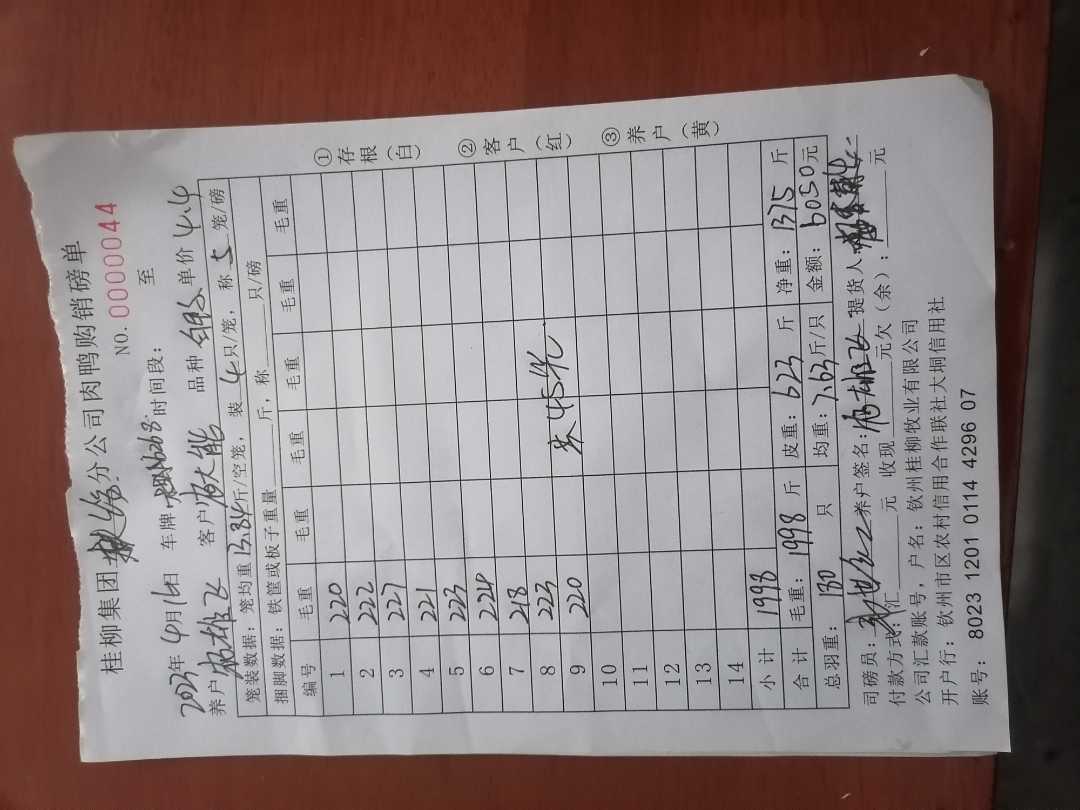 桂柳集团 分公司肉鸭购销磅单
NO. 0000044
2023年4月16日 车牌 时间段: 至
养户 杨雄飞 客户 品种 单价 4.4
笼装数据: 笼均重13.84斤/空笼, 装4只/笼, 称5笼/磅
捆脚数据: 铁筐或板子重量 斤, 称 只/磅
编号 毛重 毛重 毛重 毛重 毛重
1 220
2 222
3 227
4 221
5 223
6 224
7 218
8 223
9 220
共45笼
10
11
12
13
14
小计 1998
合计 毛重: 1998 斤 皮重: 623 斤 净重: 1375 斤
总羽重: 180 只 均重: 7.63斤/只 金额: 6050元
司磅员: 养户签名: 杨雄飞 提货人
付款方式: 汇 元 收现 元欠(余): 元
公司汇款账号, 户名: 钦州桂柳牧业有限公司
开户行: 钦州市区农村信用合作联社大垌信用社
账号: 8023 1201 0114 4296 07
①存根(白)
②客户(红)
③养户(黄)